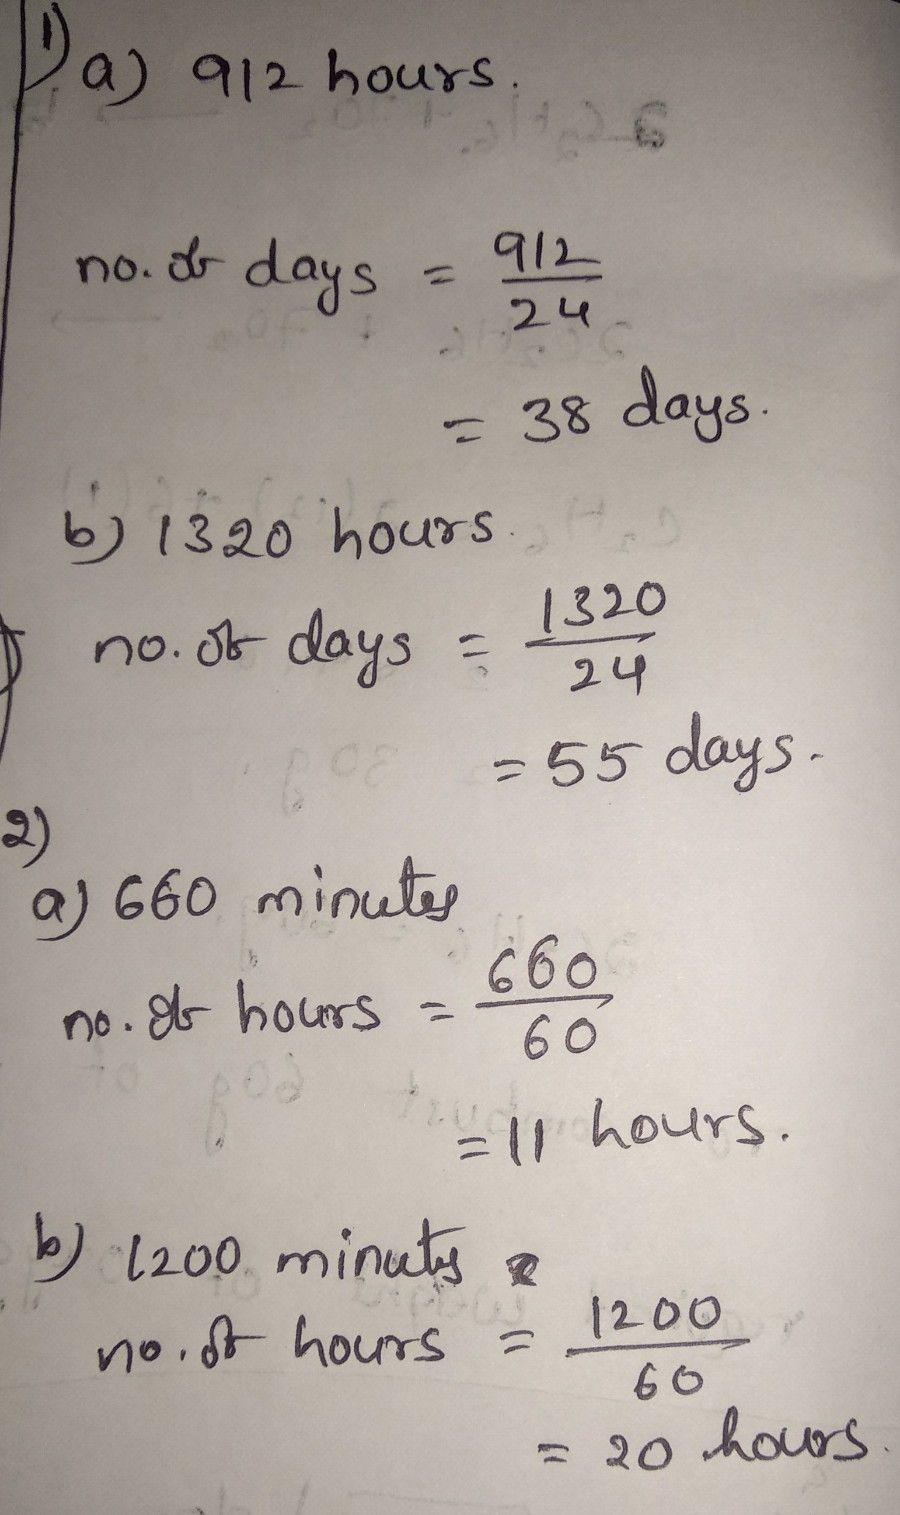 1)
a) 912 hours.
no. of days = 912/24
= 38 days.
b) 1320 hours.
no. of days = 1320/24
= 55 days.
2)
a) 660 minutes
no. of hours = 660/60
= 11 hours.
b) 1200 minutes
no. of hours = 1200/60
= 20 hours.